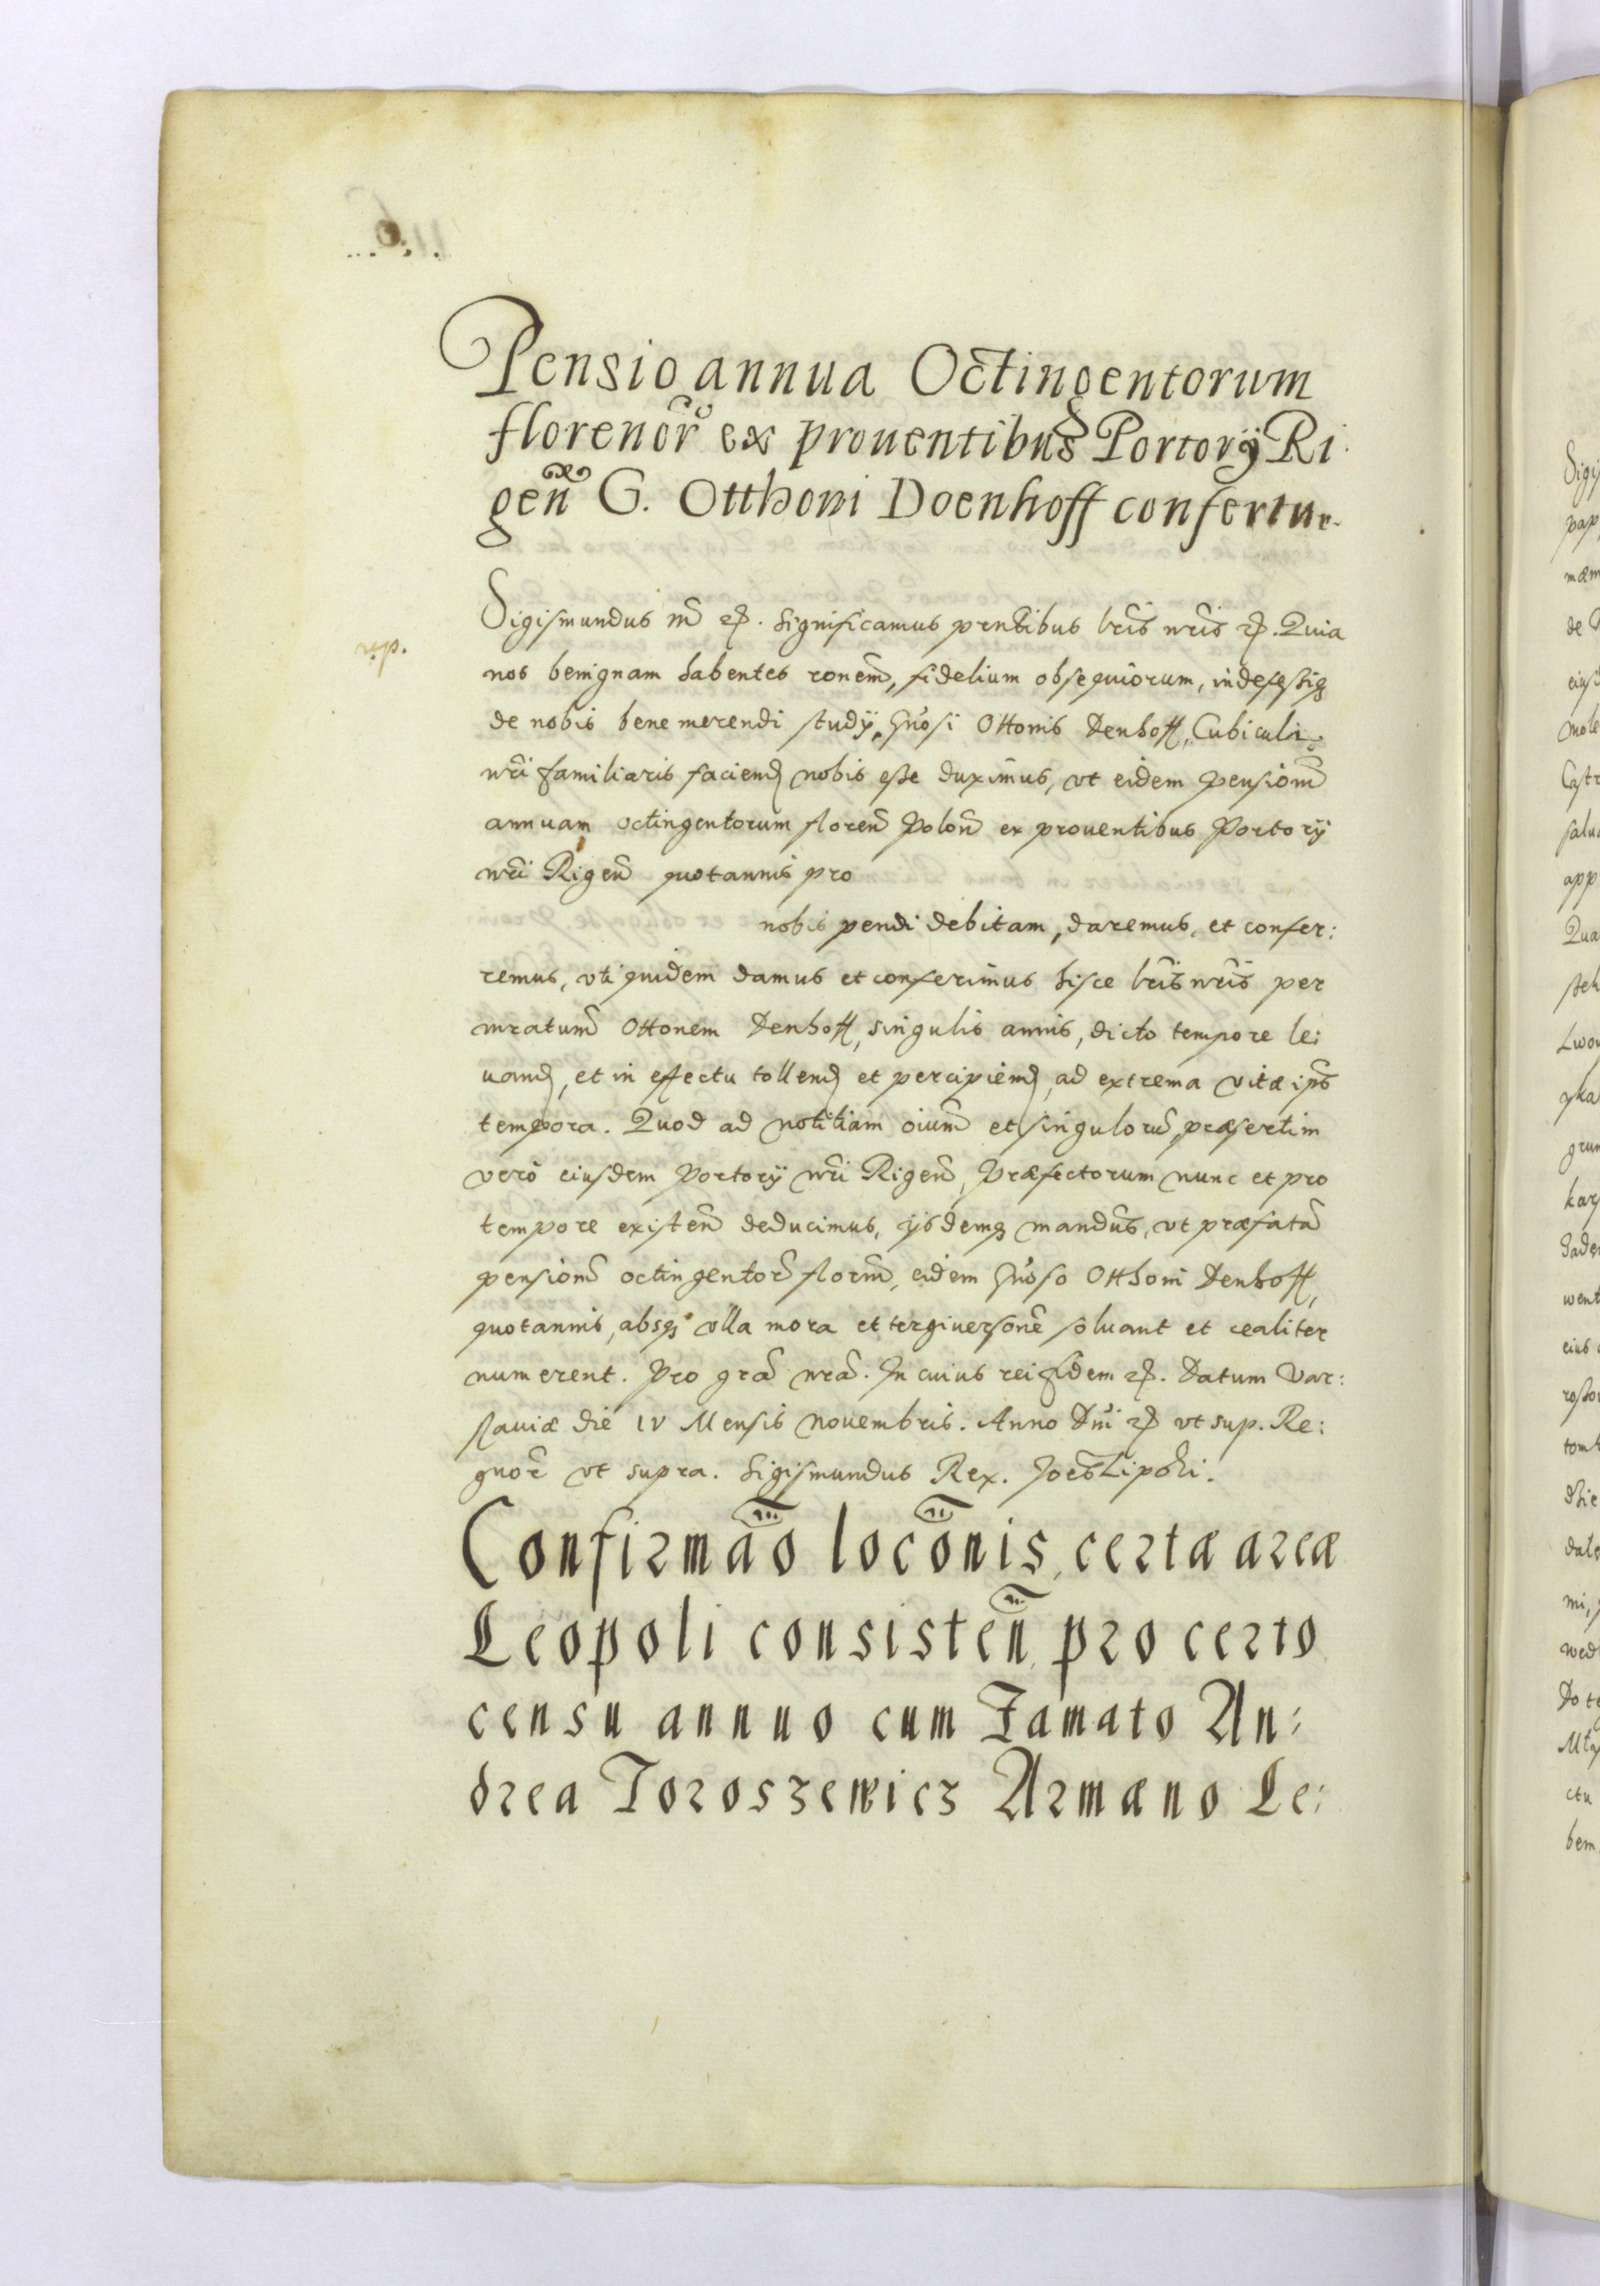 Pensio annua Octingentorum
florenor̃ ex prouentibus Portorÿ Ri
geñ G. Otthoni Doenhoff confertur.
rp.
Sigismundus III etc. Significamus prñtibus lr̃is nr̃is etc. Quia
nos benignam habentes ronem̃, fidelium obsequiorum, indefessiq;
de nobis bene merendi studÿ, Gñosi Ottonis Denhoff, Cubiculi
nr̃i familiaris faciend nobis esse duximus, vt eidem Pensiom̃
annuam octingentorum floreñ Poloñ ex prouentibus Portorÿ
nr̃i Rigeñ quotannis pro
nobis pendi debitam, daremus, et confer:
remus, vti quidem damus et conferimus hisce lr̃is nr̃is per
mratum̃ Ottonem Denhoff, singulis annis, dicto tempore le:
uand, et in effectu tollend et percipiend, ad extrema vitæ ips̃
tempora. Quod ad notitiam oium̃ et singuloru᷈, præsertim
vero eiusdem Portorÿ nr̃i Rigeñ, Præfectorum nunc et pro
tempore existeñ deducimus, ÿsdemq; mandus̃, vt præfata᷈
pensione᷈ octingentor̃ florñ, eidem Gñoso Otthoni Denhoff,
quotannis, absq; vlla mora et tergiuersone᷈ soluant et realiter
numerent. Pro gra᷈ nra᷈. In cuius rei fidem etc. Datum Var:
sauiæ die IV Mensis Nouembris. Anno Dñi etc vt sup. Re:
gnor̃ vt supra. Sigismundus Rex. Joes̃ Lipski.
Confirmão locõnis certæ areæ
Leopoli consisteñ pro certo
censu annuo cum Famato An:
drea Toroszewicz Armæno Le: